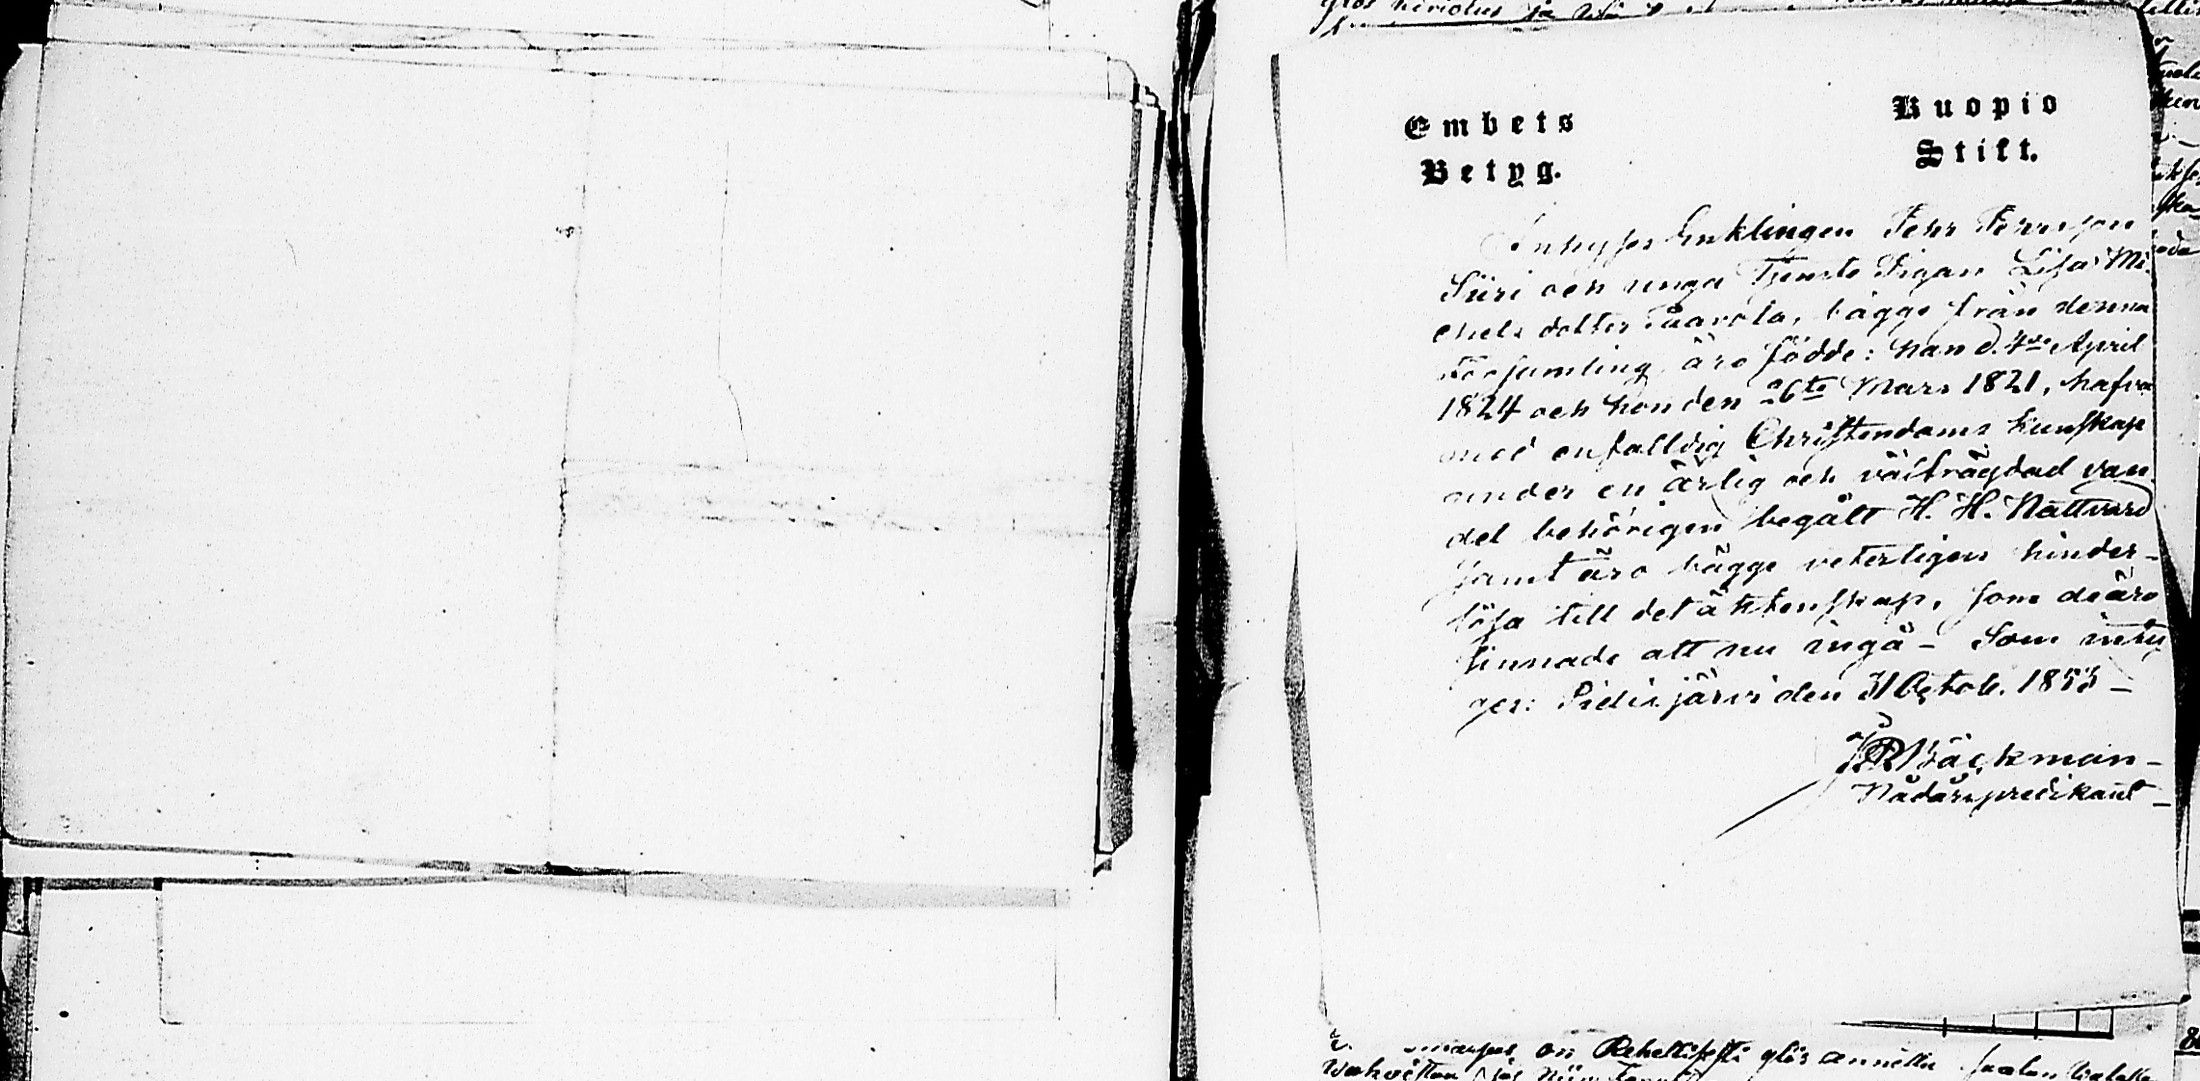 Embets
Betyg.
Kuopio
Stift.
Inhyses Enklingen Pehr Pehrsson
Siiri och unga Tjenste Pigan Lisa Mi-
chels dotter Paavola, bägge från denna
Församling, äro födde: han d. 4de April
1824 och hon den 26te Mars 1821, hafva
med enfalldig Christendoms kunskap
under en ärlig och välfrägdad van-
del behörigen begått H. H. Nattvard
samt äro bägge veterligen hinder-
lösa till det äktenskap, som de äro
sinnade att nu ingå - Som inty-
gas: Pidisjärvi den 31 Octob. 1853 -
Bäckman -
Nådårspredikant -
on Rehellisesti